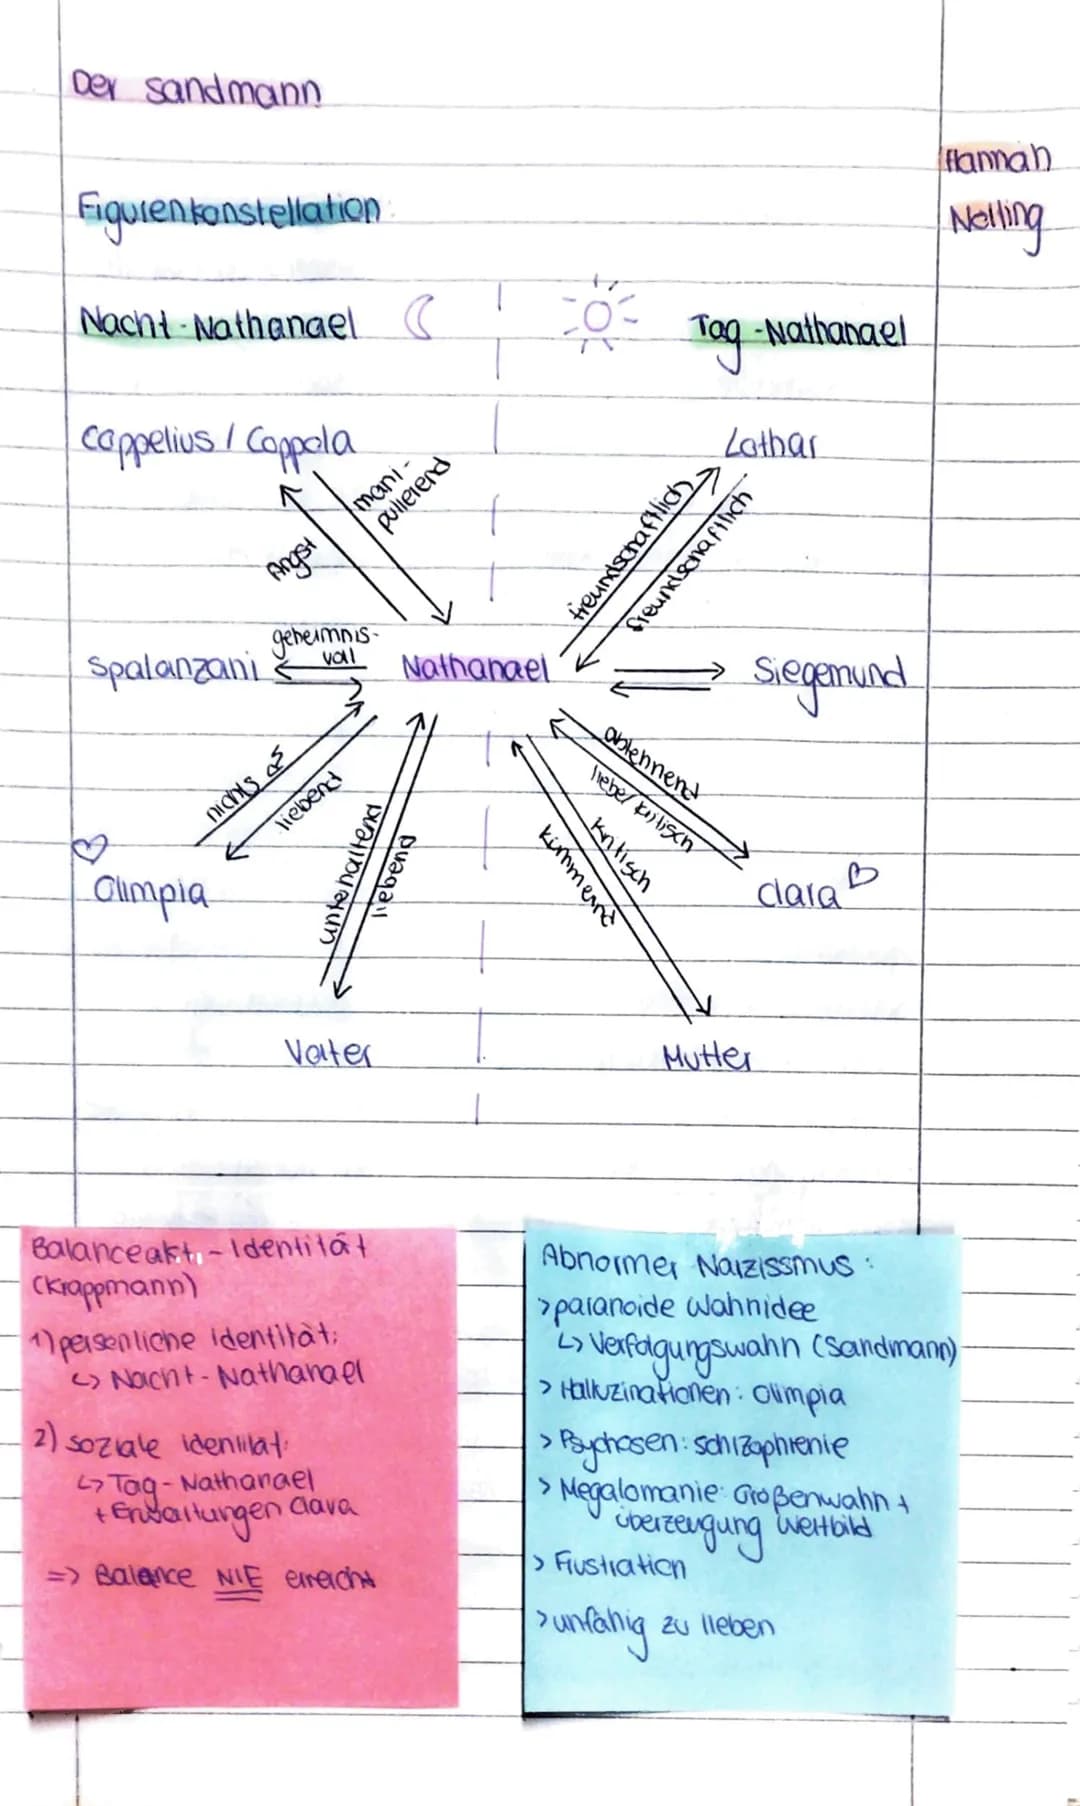 Der Sandmann
Hannah
Nölling
Figurenkonstellation
Nacht-Nathanael
Tag-Nathanael
Coppelius / Coppola
Lothar
mani-
pulierend
Angst
freundschaftlich
freundschaftlich
geheimnis-
voll
Spalanzani
Nathanael
Siegemund
nichts
liebend
ablehnend
liebe/kritisch
unterhaltend
liebend
kritisch
kümmernd
Olimpia
Clara
Vater
Mutter
Balanceakt - Identität
(Krappmann)
1) persönliche Identität:
↳ Nacht-Nathanael
2) soziale Identität:
↳ Tag-Nathanael
+ Clara
=> Balance NIE erreicht
Abnormer Narzissmus:
> paranoide Wahnidee
↳ Verfolgungswahn (Sandmann)
> Halluzinationen: Olimpia
> Psychosen: Schizophrenie
> Megalomanie: Größenwahn +
überzeugung Weltbild
> Frustration
> unfähig zu lieben